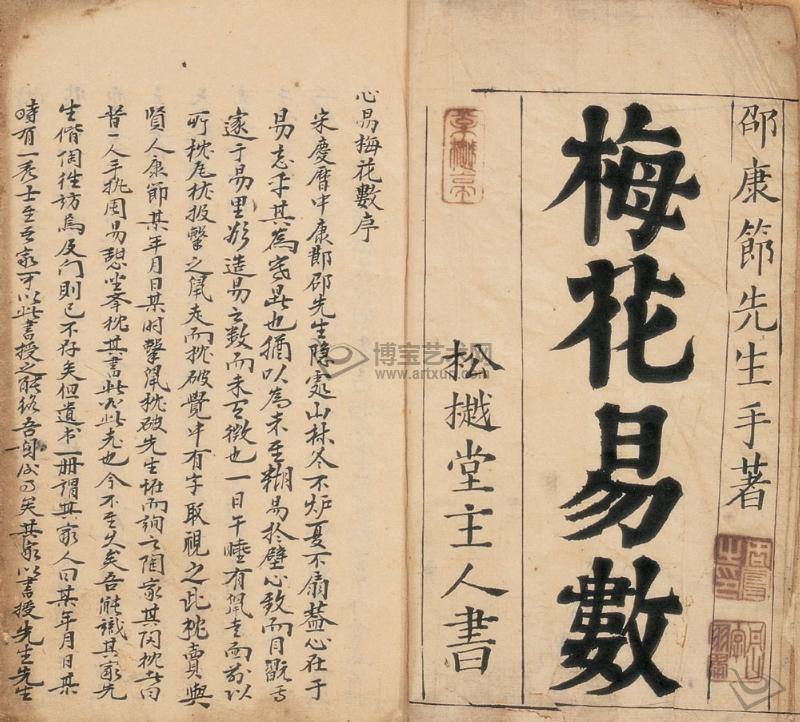 邵康節先生手著
梅花易數
松樾堂主人書
心易梅花數序
宋慶曆中康節邵先生隐處山林冬不炉夏不扇蓋心在于
易忘乎其為寒暑也猶以為未至糊易於壁心致而目翫焉
邃于易理欲造易之数而未有徵也一日午睡有鼠走而前以
所枕瓦枕投擊之鼠走而枕破覺中有字取視之此枕賣與
賢人康節某年月日某时擊鼠枕破先生怪而詢之陶家其陶枕者曰
昔一人手执周易憩坐举枕其書此必此老也今不至久矣吾能識其家先
生偕陶往訪焉及门則已不存矣但遺书一册謂其家人曰某年月日某
時有一秀士至吾家可以此書授之能終吾身後事矣其家以書授先生先生
博宝艺术网
www.artxun.com